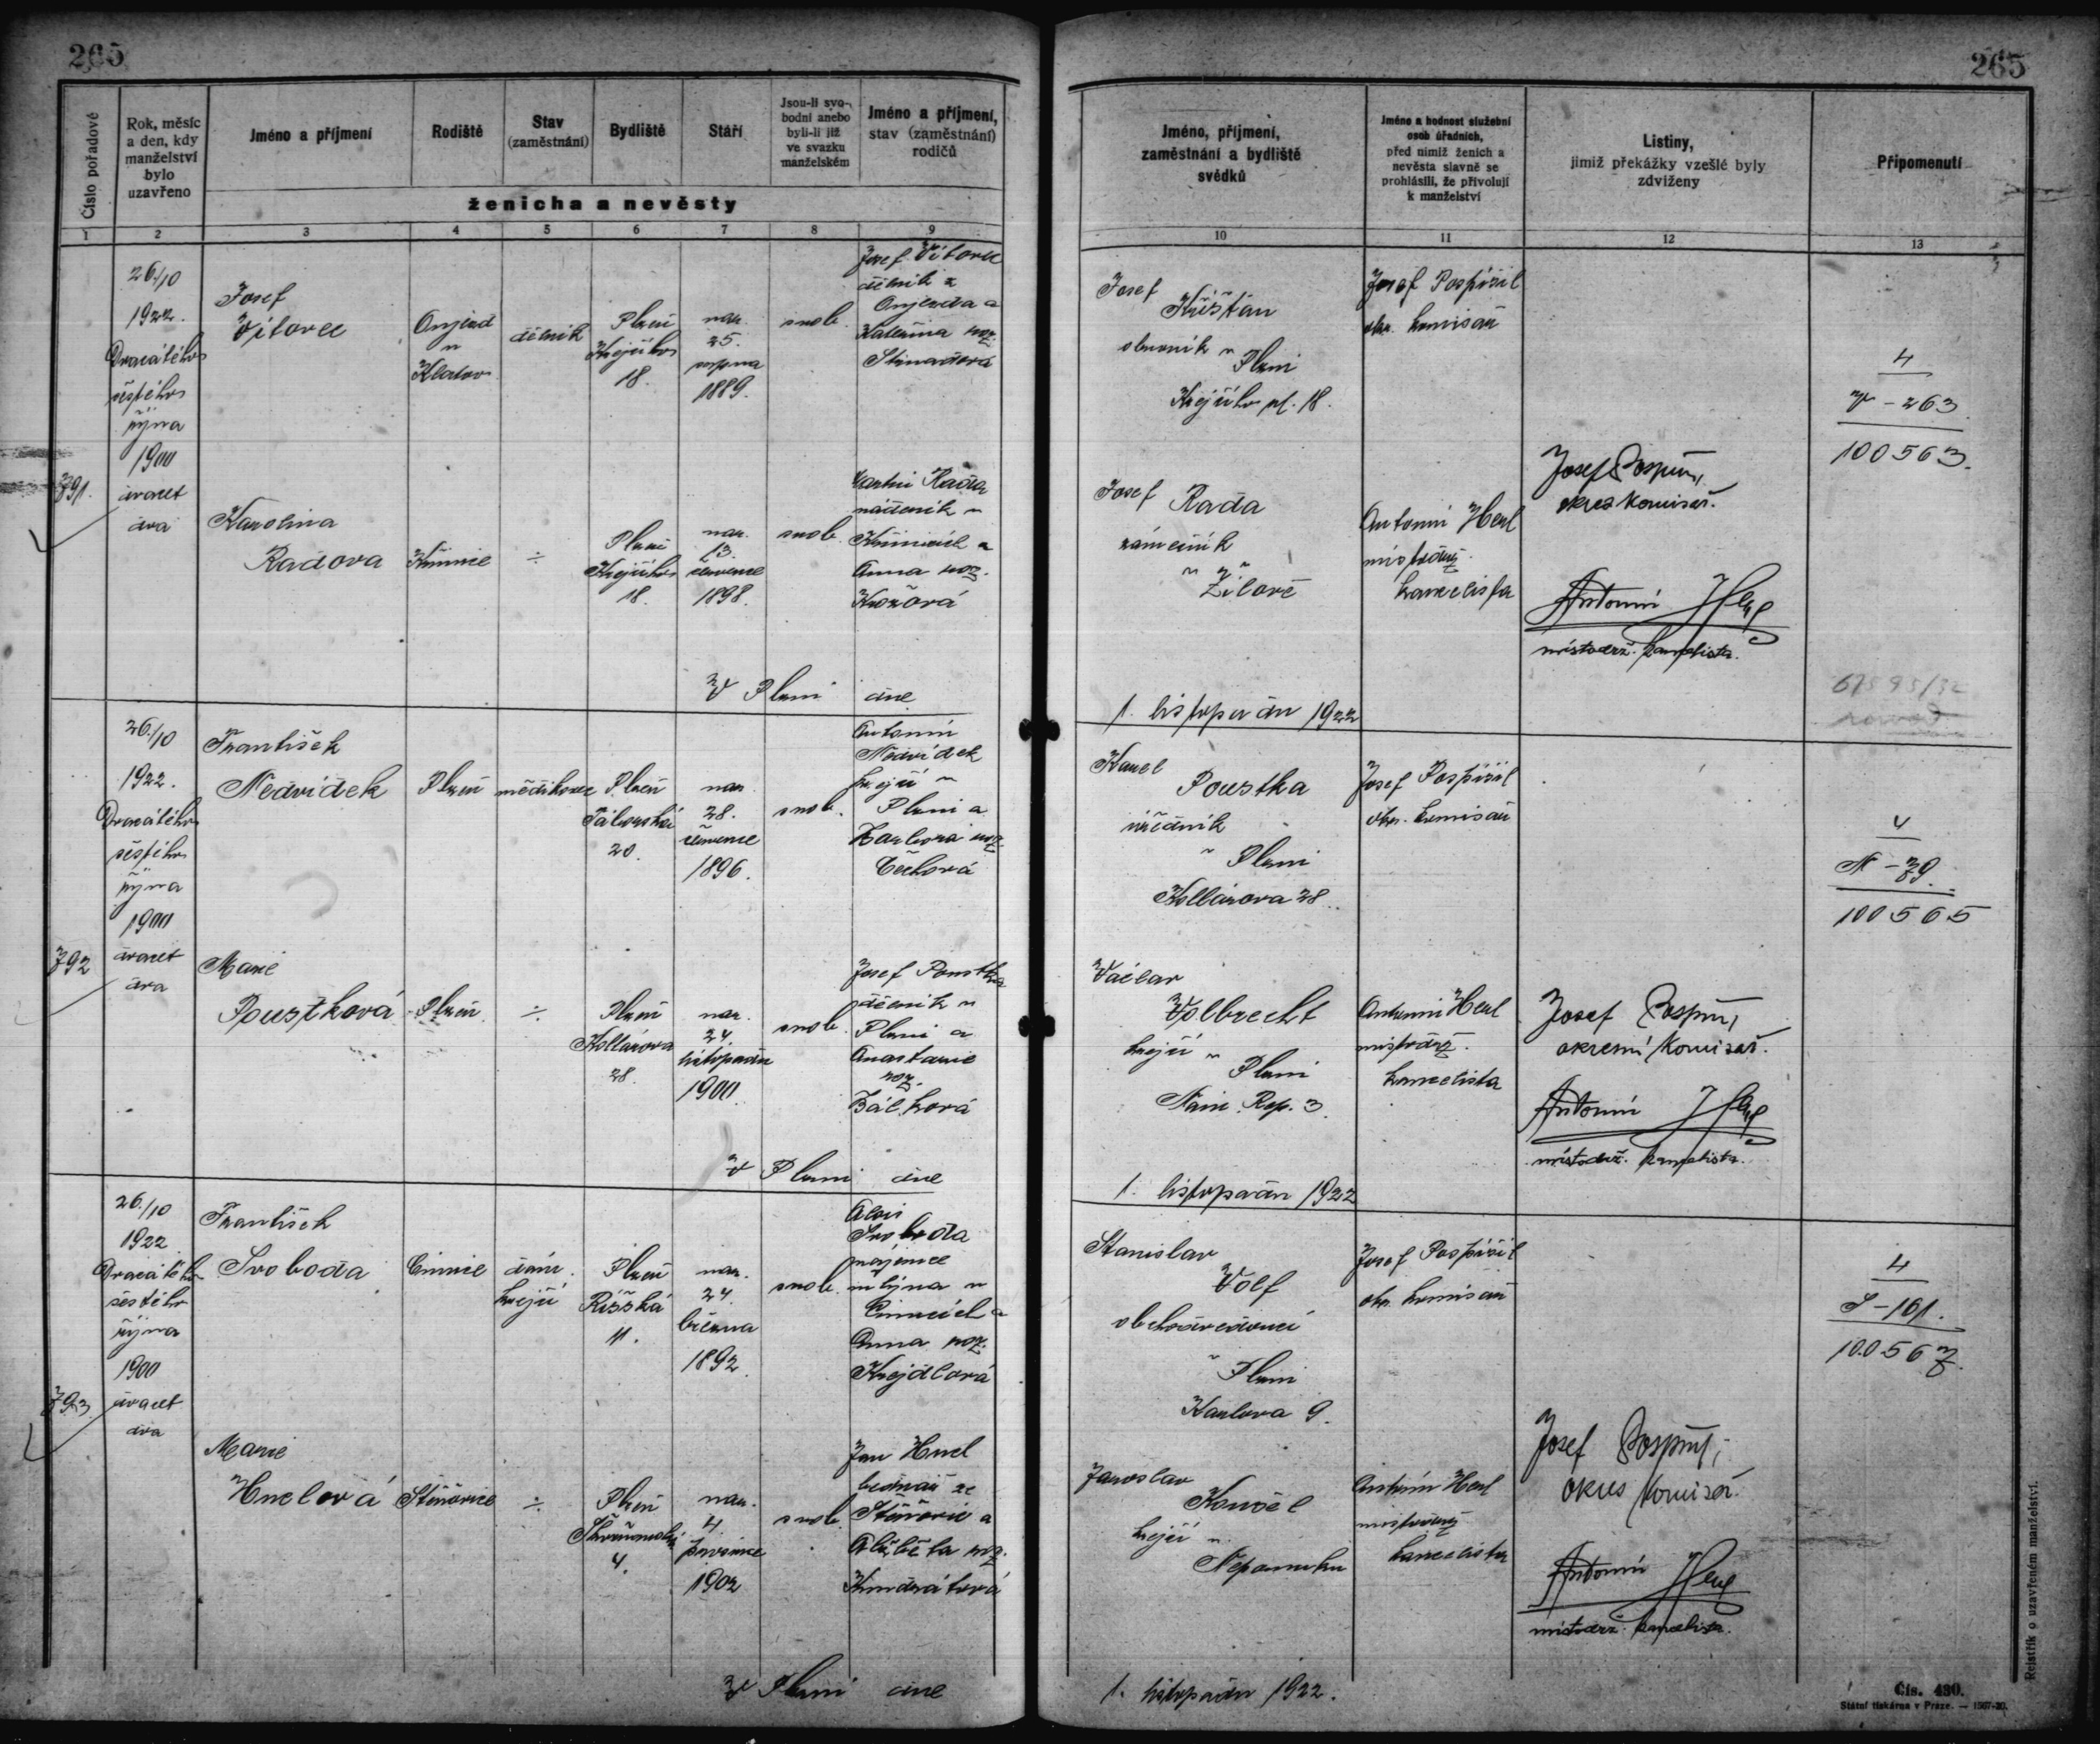 265
265
Číslo pořadové
Rok, měsíc
a den, kdy
manželství
bylo
uzavřeno
Jméno a příjmení
Rodiště
Stav
(zaměstnání)
Bydliště
Stáří
Jsou-li svo-
bodni anebo
byli-li již
ve svazku
manželském
Jméno a příjmení,
stav (zaměstnání)
rodičů
ženicha a nevěsty
Jméno, příjmení,
zaměstnání a bydliště
svědků
Jméno a hodnost služební
osob úřadních,
před nimiž ženich a
nevěsta slavně se
prohlásili, že přivolují
k manželství
Listiny,
jimiž překážky vzešlé byly
zdviženy
Připomenutí
1
2
3
4
5
6
7
8
9
10
11
12
13
791.
26./10
1922.
Dvacátého
šestého
října
1900
dvacet
dva
Josef
Vítovec
dělník
Plzeň
Krejčího
18.
nar.
25.
srpna
1889.
svob.
Josef Vítovec
dělník z
Kateřina roz.
Josef
v Plzni
Krejčího ul. 18.
Josef Pospíšil
okr. komisař
4
V - 263
100563.
Karolina
Radova
÷
Plzeň
Krejčího
18.
nar.
13.
července
1898.
svob.
Martin Rada
Anna roz.
Josef Rada
zámečník
v
Žilově
Antonín Herl
místodrž.
kancelista
Josef Pospíšil,
okres. komisař.
Antonín Herl
místodrž. kancelista.
V Plzni dne
1. listopadu 1922
792
26./10
1922.
Dvacátého
šestého
října
1900
dvacet
dva
František
Nedvídek
Plzeň
Plzeň
Táborská
20.
nar.
28.
července
1896.
svob.
Antonín
Nedvídek
krejčí v
Plzni a
Barbora roz.
Čechová
Karel
Poustka
úředník
v Plzni
Kollárova 28.
Josef Pospíšil
okr. komisař
4
N - 79.
100565
Marie
Poustková
Plzeň
÷
Plzeň
Kollárova
28.
nar.
24.
listopadu
1900
svob.
Josef Poustka
dělník v
Plzni a
Anastazie
roz.
Bálková
Václav
Volbrecht
krejčí v
Plzni
Nám. Rep. 3
Antonín Herl
místodrž.
kancelista
Josef Pospíšil,
okresní komisař.
Antonín Herl
místodrž. kancelista.
V Plzni dne
1. listopadu 1922
793
26./10
1922
Dvacátého
šestého
října
1900
dvacet
dva
František
Svoboda
dám.
krejčí
Plzeň
Říšská
11.
nar.
24.
března
1892
svob.
Alois
Svoboda
nájemce
mlýna v
Anna roz.
Krejdlová
Stanislav
Volf
obchodvedoucí
v Plzni
Karlova 9.
Josef Pospíšil
okr. komisař
4
S - 161.
100567.
Marie
Hnelová
Štěnovice
÷
Plzeň
4.
nar.
4.
prosince
1902
svob.
Jan Hnel
bednář ze
Štěnovic a
Alžběta roz.
Kondrátová
Jaroslav
krejčí v
Nepomuku
Antonín Herl
místodrž.
kancelista
Josef Pospíšil,
okres. komisař.
Antonín Herl
místodrž. kancelista.
V Plzni dne
1. listopadu 1922.
Rejstřík o uzavřeném manželství.
Čís. 430.
Státní tiskárna v Praze. — 1567-20.